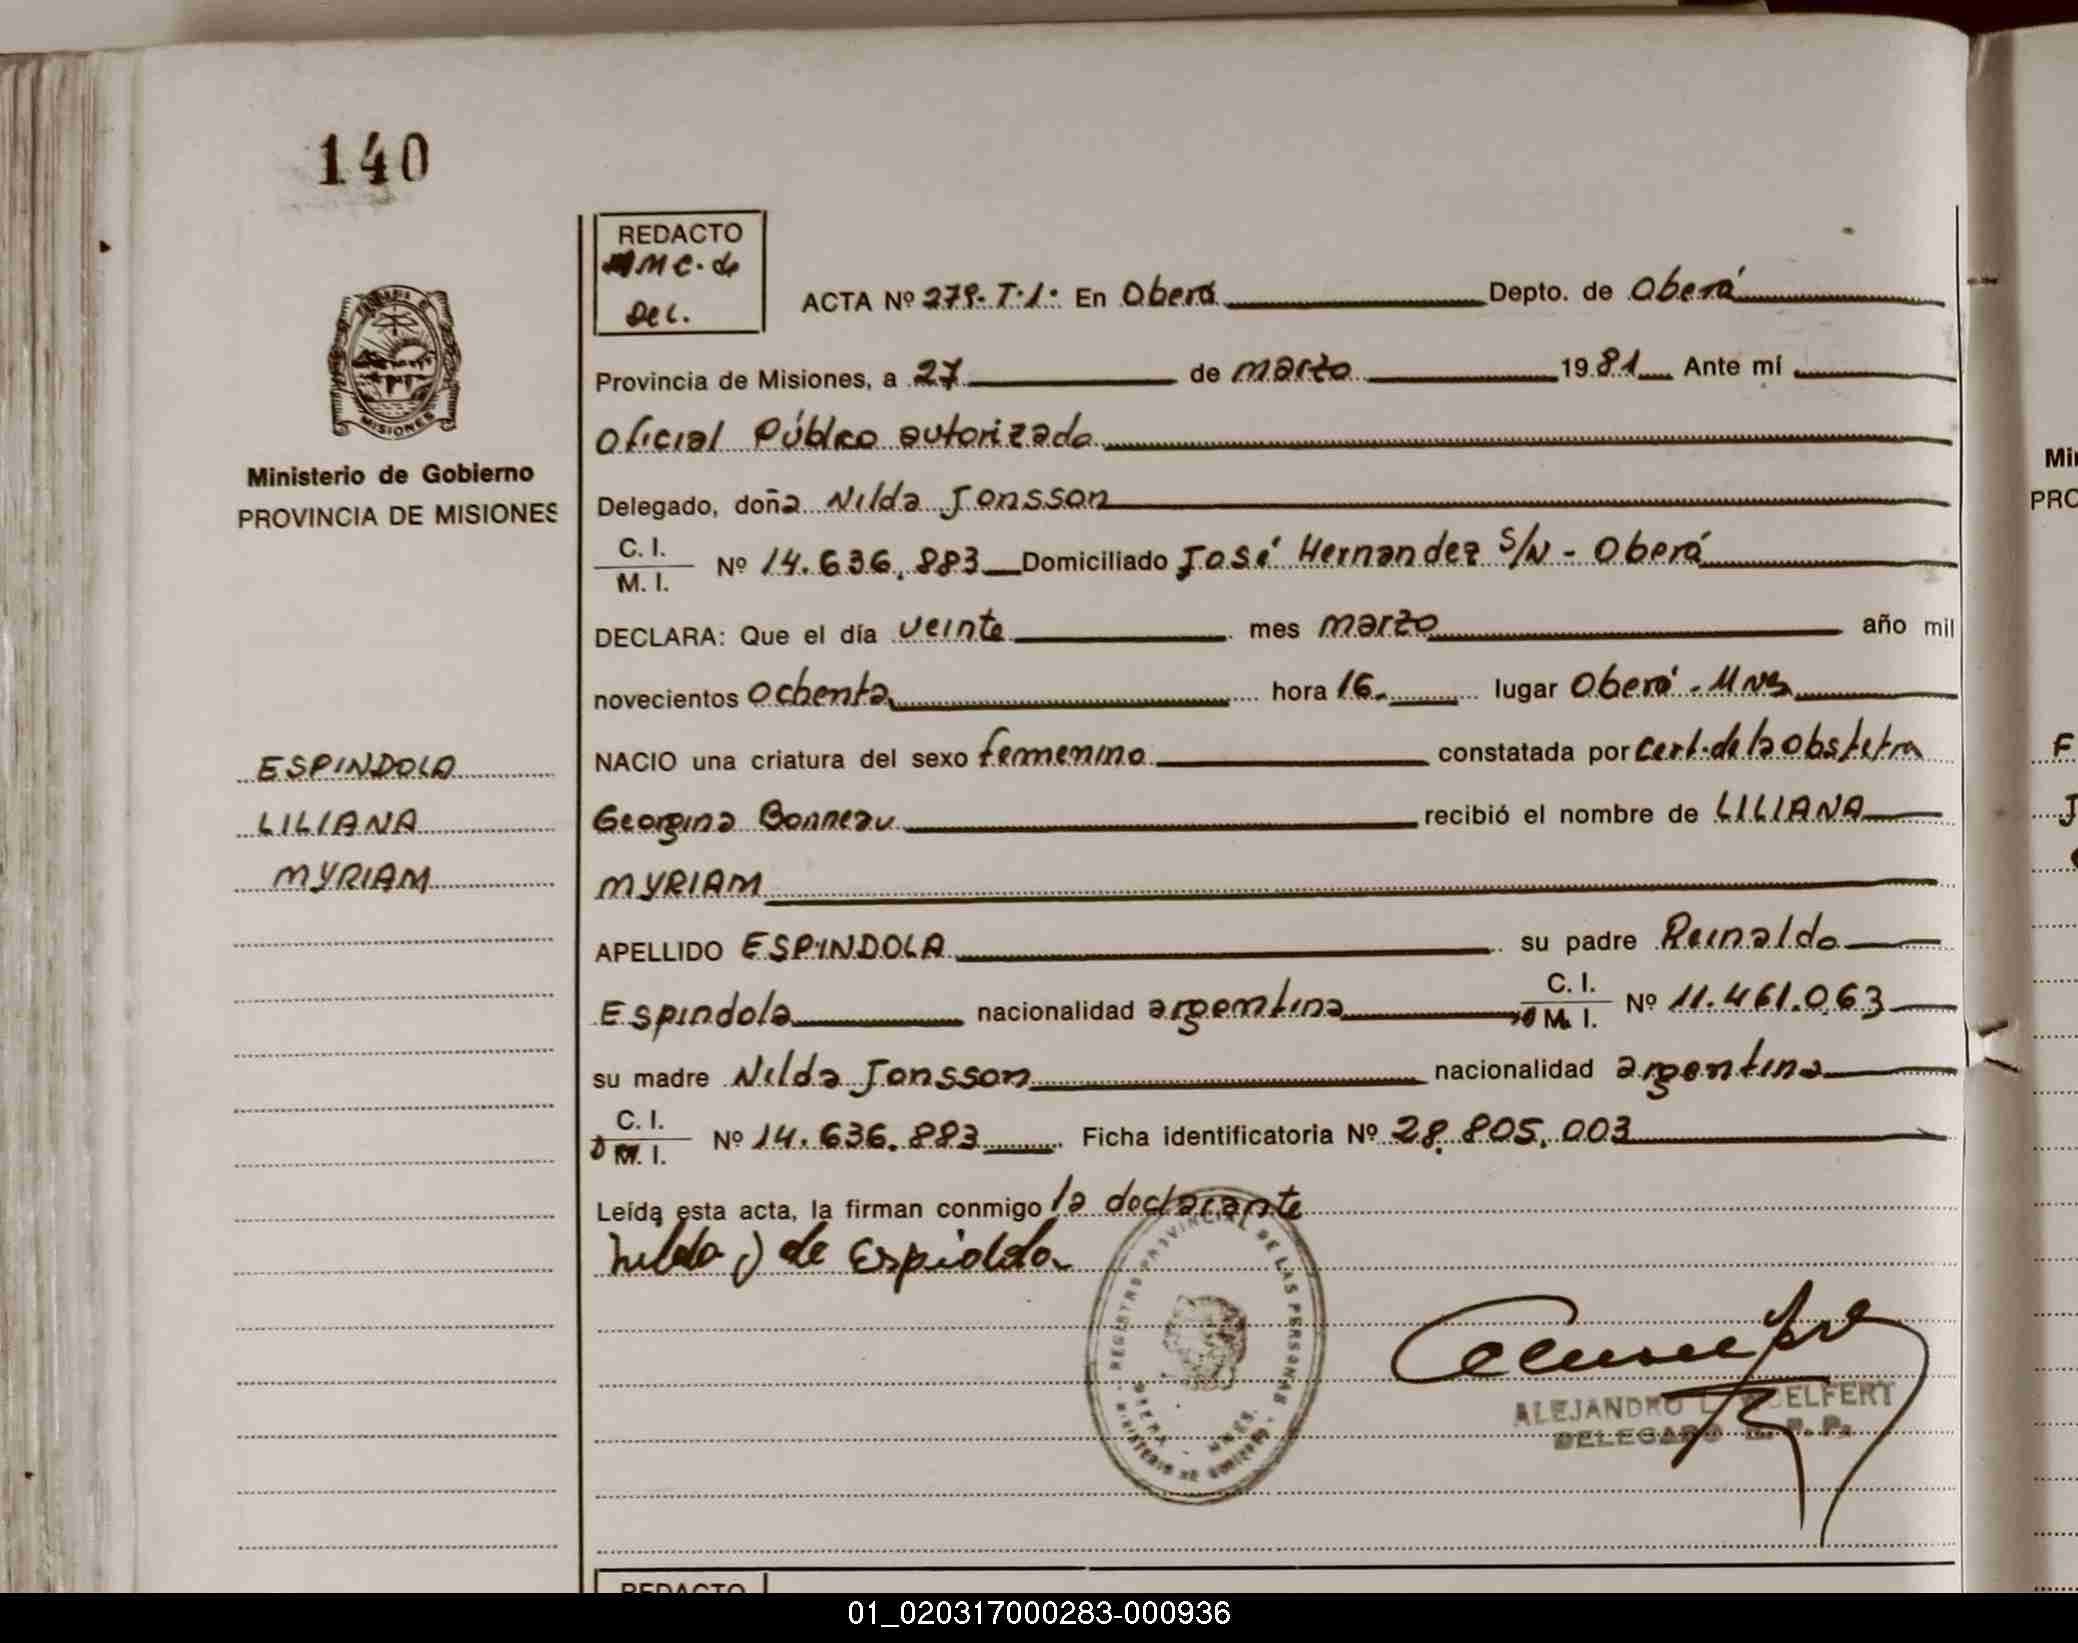 140
REDACTO
MC. de
Dec.
ACTA Nº 279. T.1. En Oberá Depto. de Oberá
Provincia de Misiones, a 27 de marzo 1981 Ante mí
Oficial Público autorizado
Delegado, doña Nilda Jonsson
C. I.
M. I. Nº 14.636.883 Domiciliado José Hernandez S/N - Oberá
DECLARA: Que el día veinte mes marzo año mil
novecientos ochenta hora 16. lugar Oberá - Mnes
NACIO una criatura del sexo femenino constatada por cert. de la obstetra
Georgina Bonneau recibió el nombre de LILIANA
MYRIAM
APELLIDO ESPINDOLA su padre Reinaldo
Espindola nacionalidad argentina C. I. M. I. Nº 11.461.063
su madre Nilda Jonsson nacionalidad argentina
C. I.
M. I. Nº 14.636.883 Ficha identificatoria Nº 28.805.003
Leída esta acta, la firman conmigo la declarante
Nilda J de Espindola
REGISTRO PROVINCIAL DE LAS PERSONAS
MINISTERIO DE GOBIERNO
ALEJANDRO L. ELFERT
DELEGADO R. P. P.
MISIONES
Ministerio de Gobierno
PROVINCIA DE MISIONES
ESPINDOLA
LILIANA
MYRIAM
REDACTO
Min
PRO
01_020317000283-000936